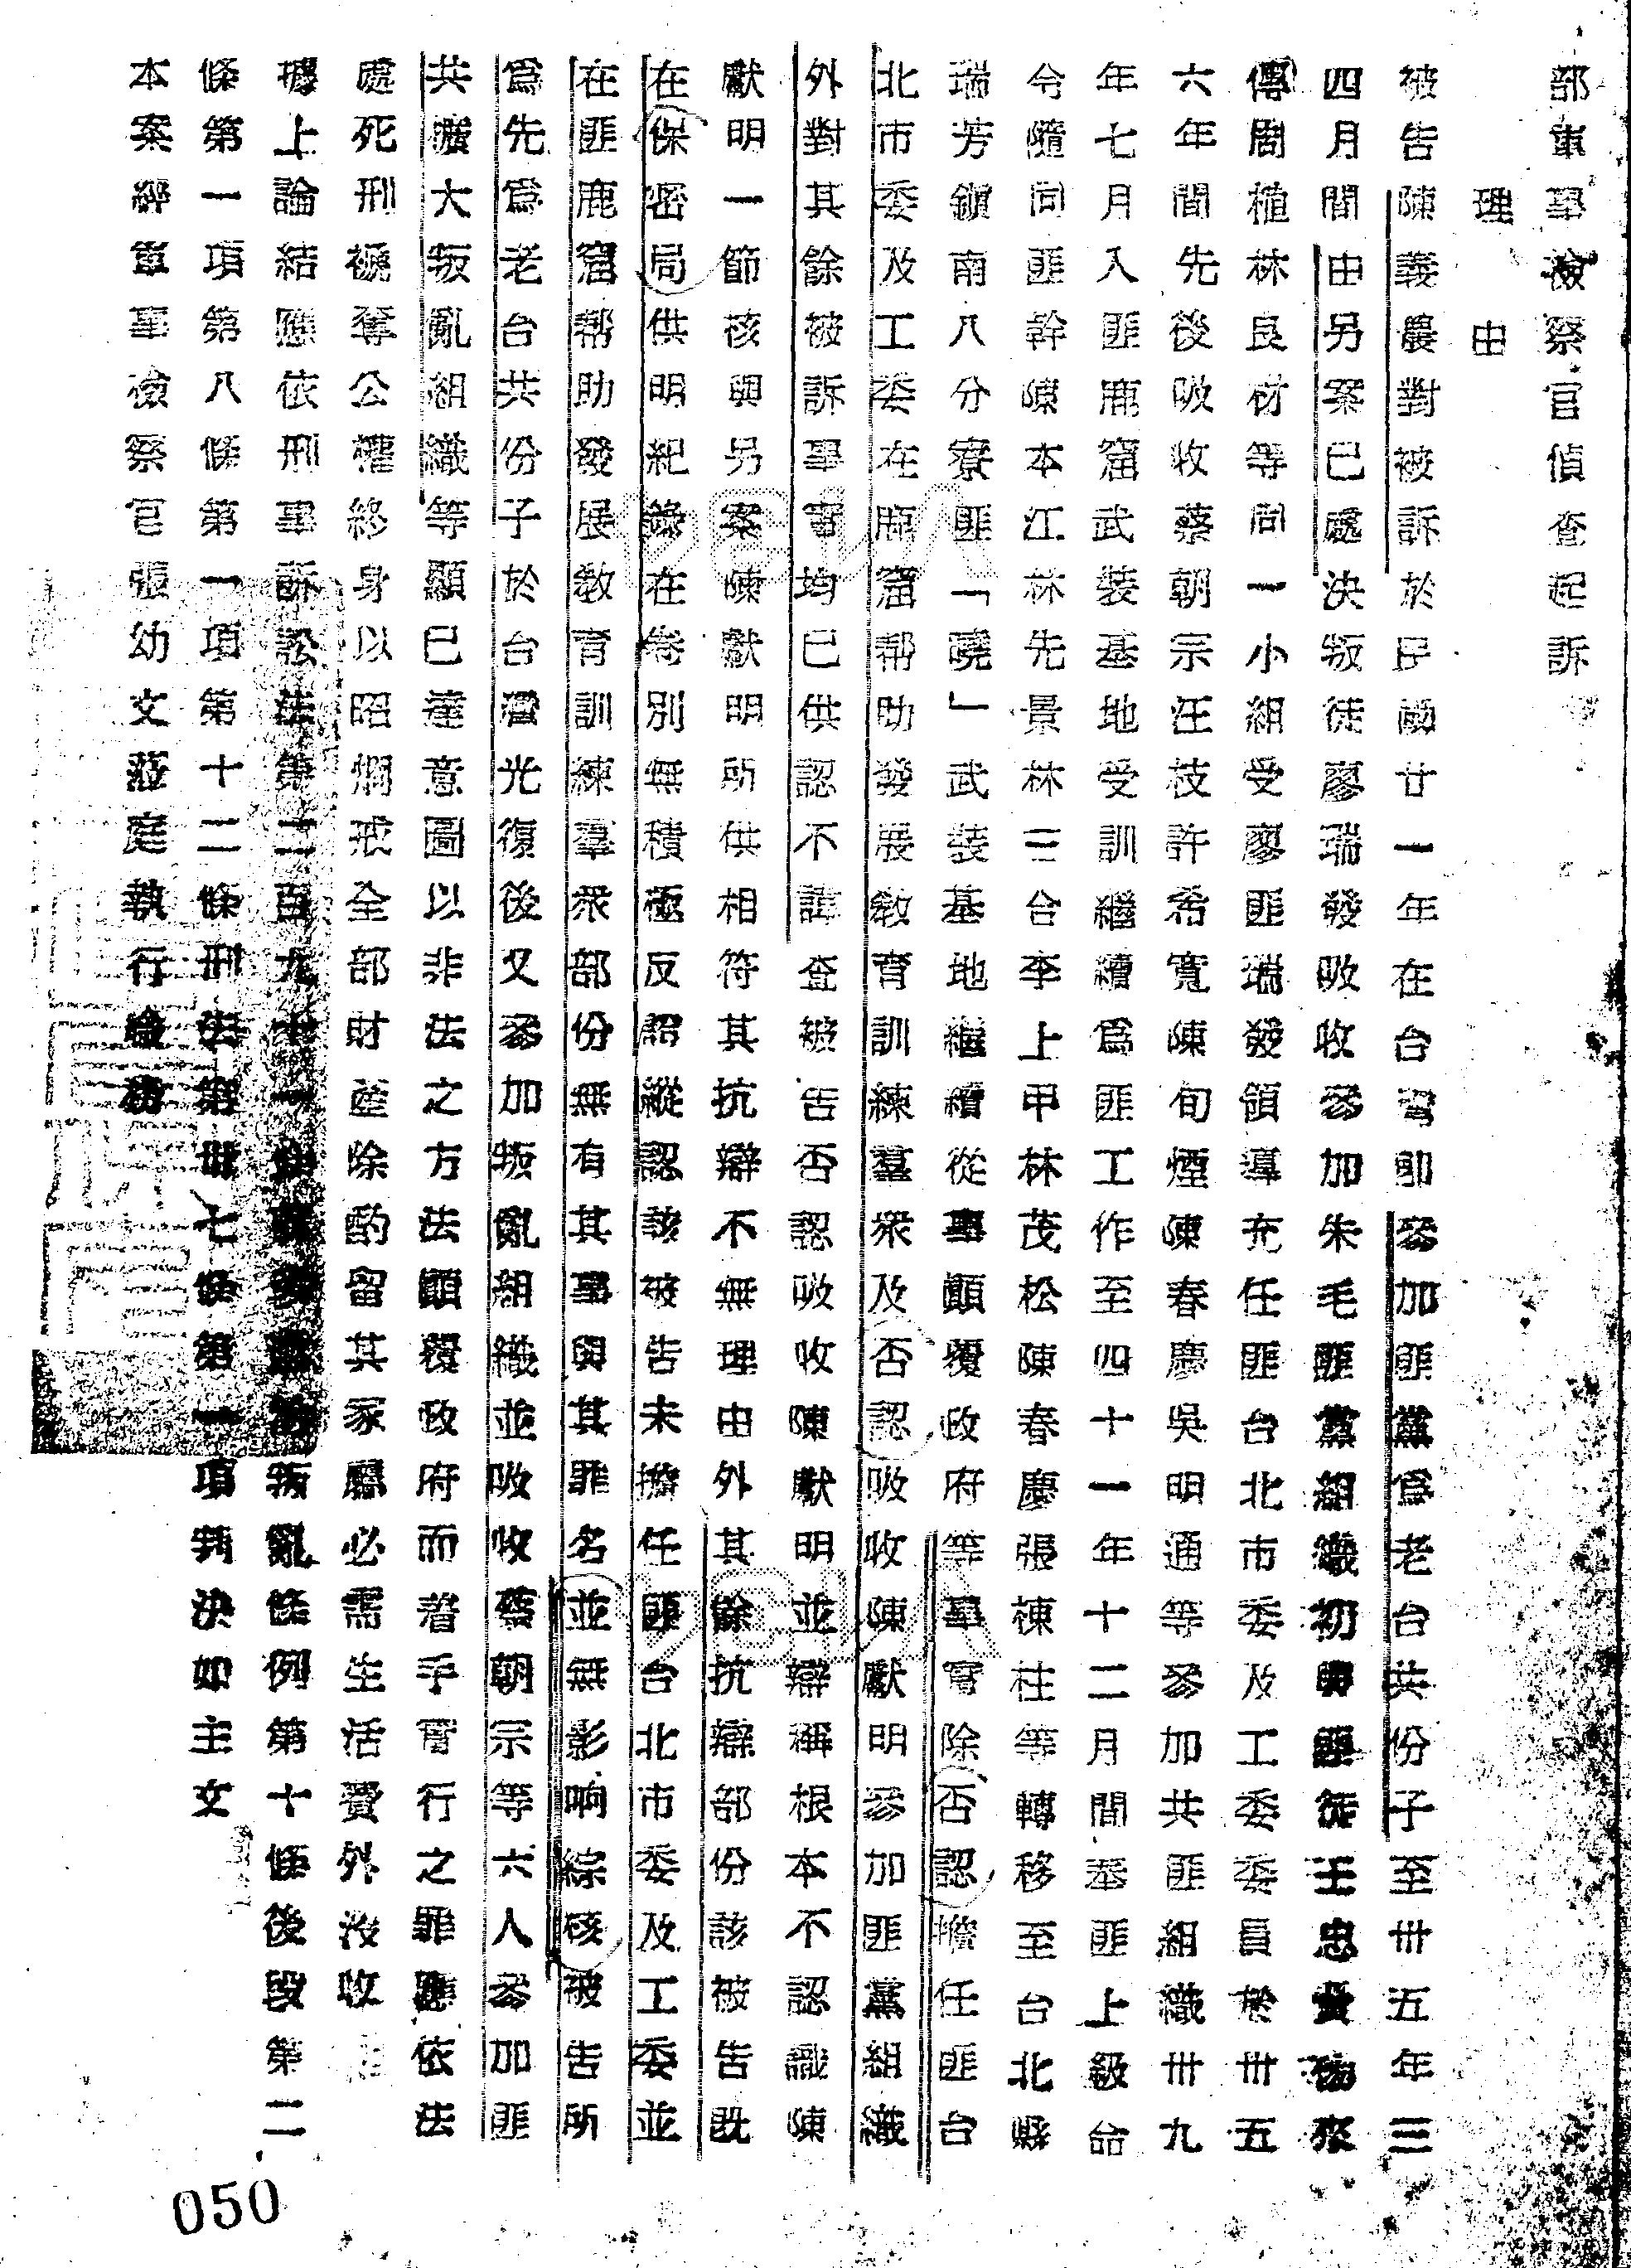 部軍事檢察官偵查起訴
理由
被告陳義農對被訴於民國廿一年在台灣即參加匪黨為老台共份子至卅五年三
四月間由另案已處決叛徒廖瑞發吸收參加朱毛匪黨組織初與匪徒王忠賢楊來
傳周植林良材等同一小組受廖匪瑞發領導充任匪台北市委及工委委員於卅五
六年間先後吸收蔡朝宗汪枝許希寬陳旬煙陳春慶吳明通等參加共匪組織卅九
年七月入匪鹿窟武裝基地受訓繼續為匪工作至四十一年十二月間奉匪上級命
令隨同匪幹陳本江林先景林三合李上甲林茂松陳春慶張棟柱等轉移至台北縣
瑞芳鎮南八分寮匪「曉」武裝基地繼續從事顛覆政府等事實除否認擔任匪台
北市委及工委在鹿窟幫助發展教育訓練羣衆及否認吸收陳獻明參加匪黨組織
外對其餘被訴事實均已供認不諱查被告否認吸收陳獻明並辯稱根本不認識陳
獻明一節核與另案陳獻明所供相符其抗辯不無理由外其餘抗辯部份該被告既
在保密局供明紀錄在卷別無積極反證縱認該被告未擔任匪台北市委及工委並
在匪鹿窟幫助發展教育訓練羣衆部份無有其事與其罪名並無影响綜核被告所
為先為老台共份子於台灣光復後又參加叛亂組織並吸收蔡朝宗等六人參加匪
共擴大叛亂組織等顯已達意圖以非法之方法顛覆政府而着手實行之罪應依法
處死刑褫奪公權終身以昭烱戒全部財產除酌留其家屬必需生活費外沒收
據上論結應依刑事訴訟法第二百九十一條叛亂條例第十條後段第二
條第一項第八條第一項第十二條刑法第卅七條第一項判決如主文
本案經軍事檢察官張幼文蒞庭執行職務
050